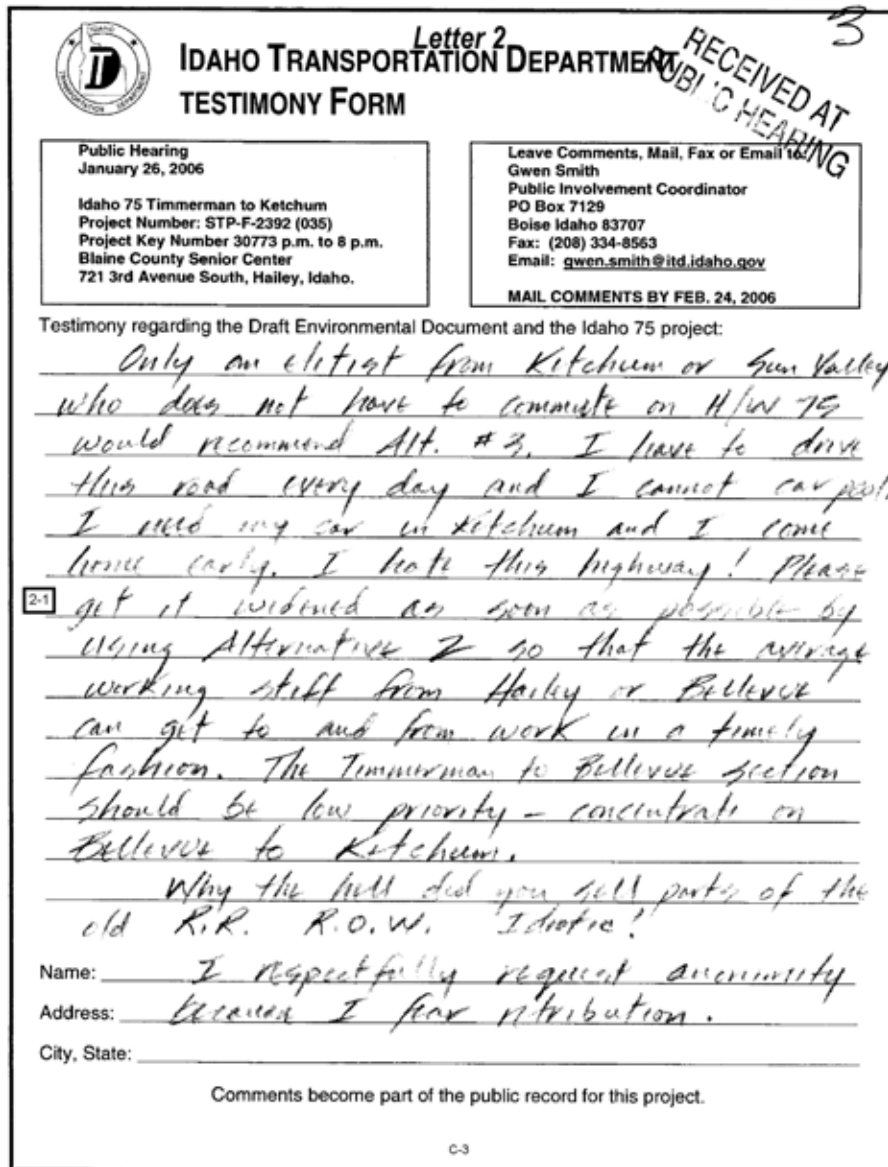 3
Letter 2
IDAHO TRANSPORTATION DEPARTMENT
TESTIMONY FORM
RECEIVED AT
PUBLIC HEARING
IDAHO
TRANSPORTATION DEPARTMENT
Public Hearing
January 26, 2006
Idaho 75 Timmerman to Ketchum
Project Number: STP-F-2392 (035)
Project Key Number 30773 p.m. to 8 p.m.
Blaine County Senior Center
721 3rd Avenue South, Hailey, Idaho.
Leave Comments, Mail, Fax or Email to:
Gwen Smith
Public Involvement Coordinator
PO Box 7129
Boise Idaho 83707
Fax: (208) 334-8563
Email: gwen.smith@itd.idaho.gov
MAIL COMMENTS BY FEB. 24, 2006
Testimony regarding the Draft Environmental Document and the Idaho 75 project:
Only an elitist from Ketchum or Sun Valley
who does not have to commute on H/W 75
would recommend Alt. #3. I have to drive
this road every day and I cannot car pool.
I need my car in Ketchum and I come
home early. I hate this highway! Please
2-1
get it widened as soon as possible by
using Alternative 2 so that the average
working stiff from Hailey or Bellevue
can get to and from work in a timely
fashion. The Timmerman to Bellevue section
should be low priority - concentrate on
Bellevue to Ketchum.
Why the hell did you sell parts of the
old R.R. R.O.W. Idiotic!
Name: I respectfully request anonimity
Address: because I fear retribution.
City, State:
Comments become part of the public record for this project.
C-3